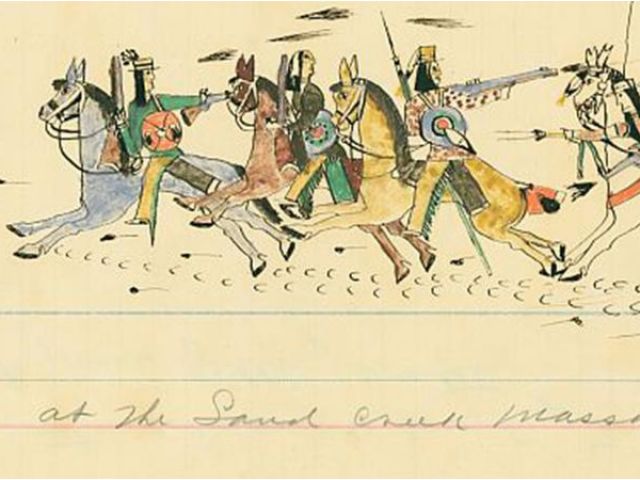 at the Sand Creek Massa